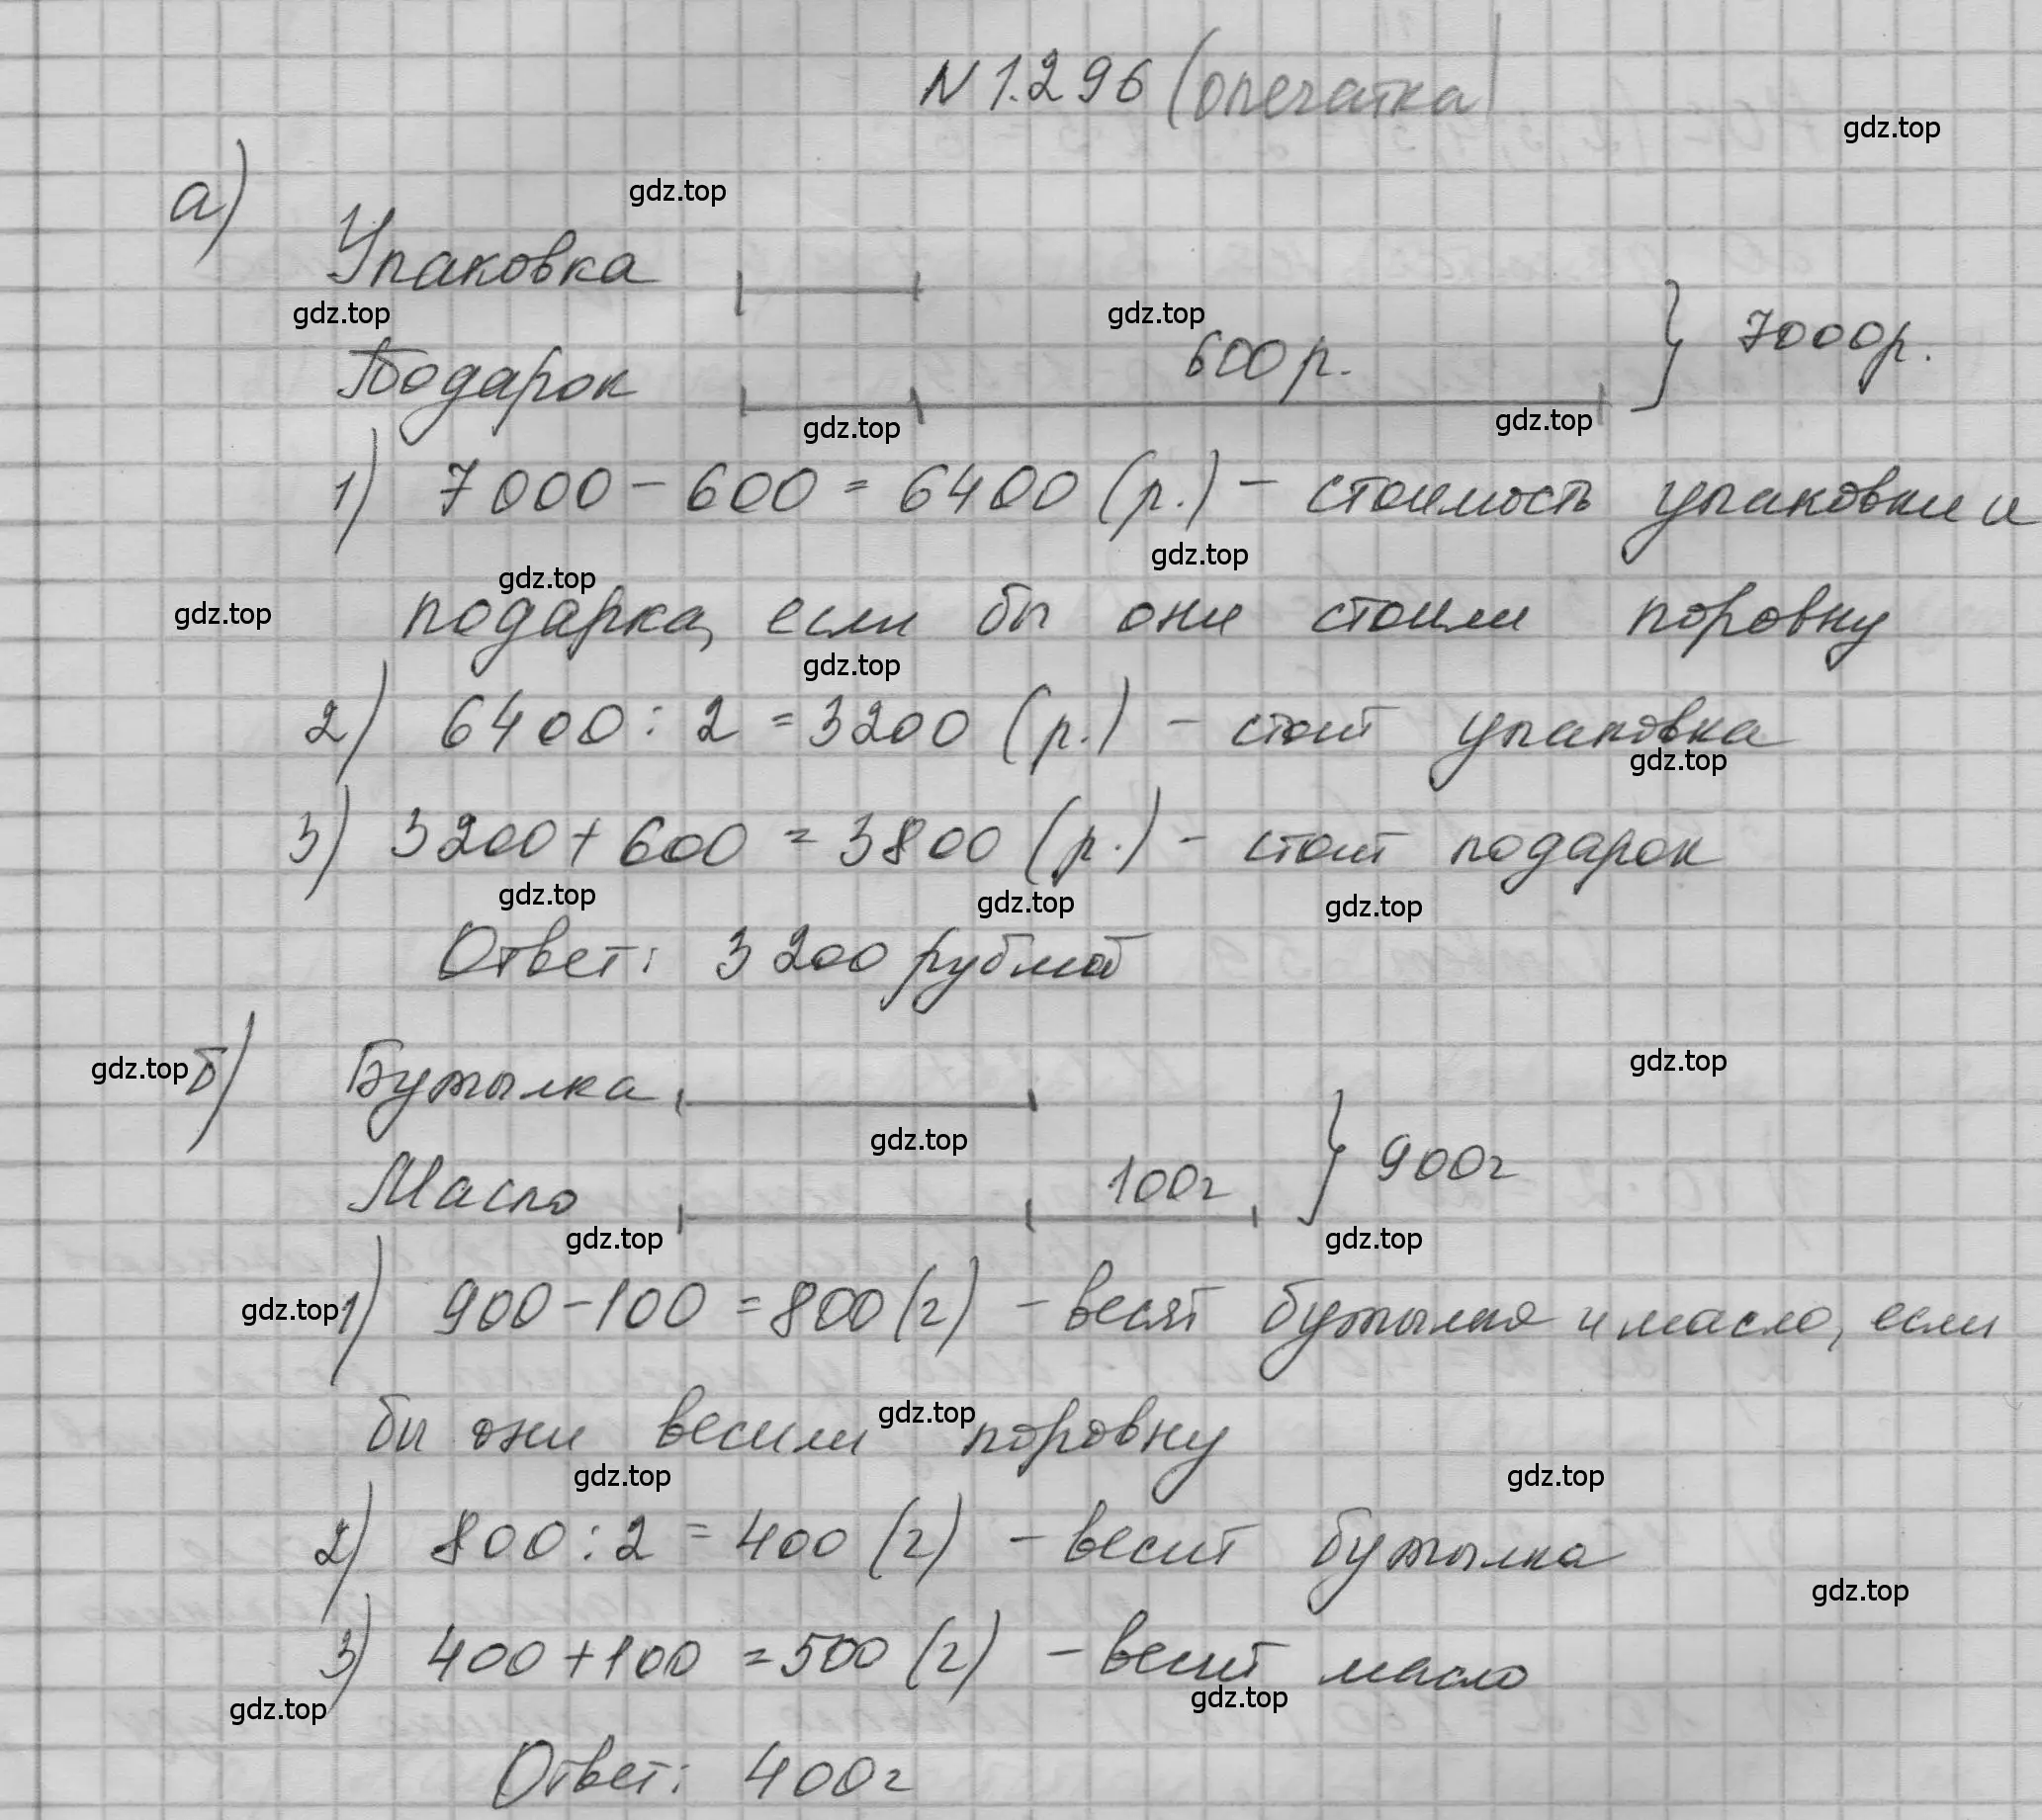 N 1.296 (опечатка)
gdz.top
а)
gdz.top
Упаковка
gdz.top
gdz.top
600 р.
7000р.
Подарок
gdz.top
gdz.top
1) 7000 - 600 = 6400 (р.) - стоимость упаковки и
gdz.top
gdz.top
gdz.top
подарка, если бы они стоили поровну
gdz.top
2) 6400 : 2 = 3200 (р.) - стоит упаковка
gdz.top
3) 3200 + 600 = 3800 (р.) - стоит подарок
gdz.top
gdz.top
gdz.top
Ответ: 3200 рублей
gdz.top
б)
Бутылка
gdz.top
gdz.top
Масло
100г
900г
gdz.top
gdz.top
gdz.top
1) 900 - 100 = 800 (г) - весят бутылка и масло, если
gdz.top
бы они весили поровну
gdz.top
gdz.top
2) 800 : 2 = 400 (г) - весит бутылка
gdz.top
3) 400 + 100 = 500 (г) - весит масло
gdz.top
gdz.top
Ответ: 400г